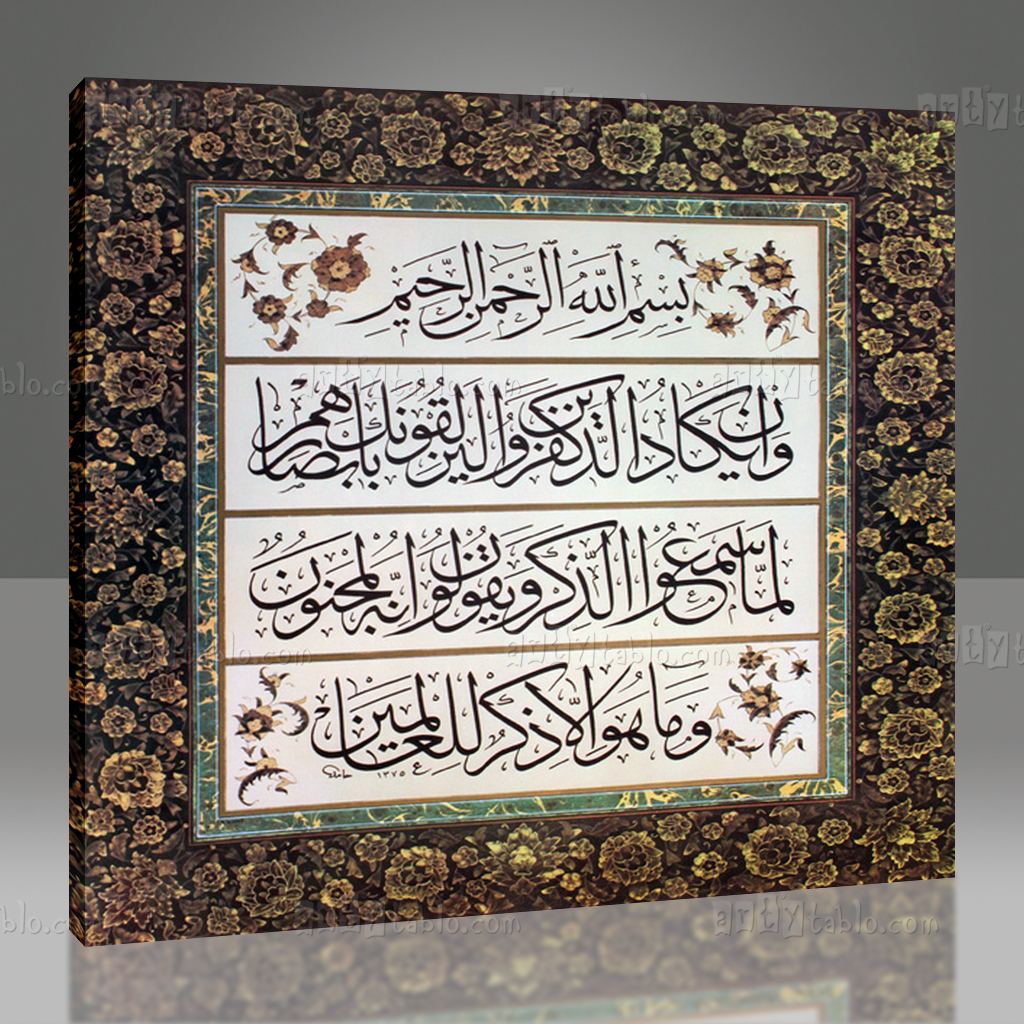 بسم الله الرحمن الرحيم
وان يكاد الذين كفروا ليزلقونك بابصارهم
لما سمعوا الذكر ويقولون انه لمجنون
وما هو الا ذكر للعالمين
١٣٧٥
artiytablo.com